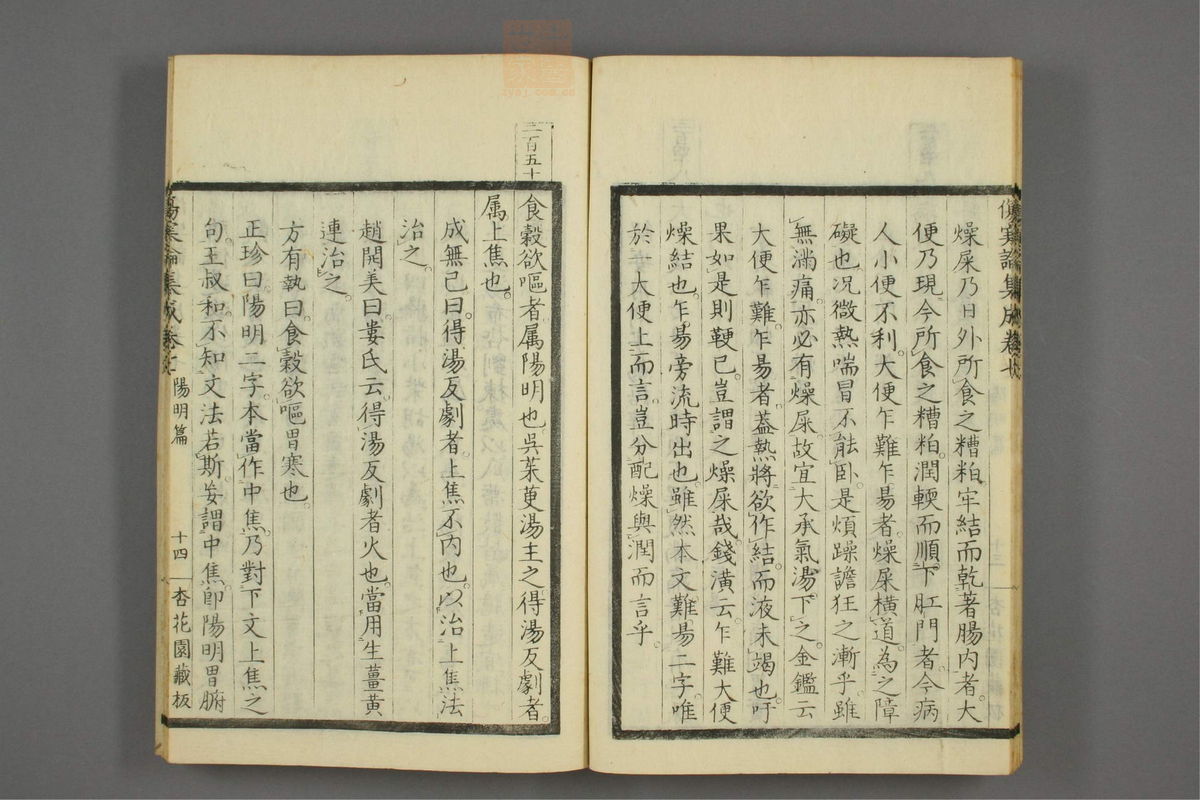 傷寒論集成卷七
燥屎乃日外所食之糟粕牢結而乾著腸內者。大
便乃現今所食之糟粕。潤輭而順下肛門者。今病
人小便不利。大便乍難乍易者。燥屎橫道。為之障
礙也。况微熱喘冒不能臥。是煩躁譫狂之漸乎。雖
無滿痛。亦必有燥屎。故宜大承氣湯下之。金鑑云
大便乍難。乍易者。蓋熱將欲作結。而液未竭也。吁
果如是則鞕已。豈謂之燥屎哉。錢潢云。乍難大便
燥結也。乍易旁流時出也。雖然本文難易二字。唯
於大便上而言。豈分配燥與潤而言乎。
二百五十
食穀欲嘔者属陽明也吳茱萸湯主之得湯反劇者。
属上焦也。
成無己曰。得湯反劇者。上焦不內也。以治上焦法
治之。
趙開美曰。婁氏云。得湯反劇者火也。當用生薑黃
連治之。
方有執曰。食穀欲嘔胃寒也。
正珍曰。陽明二字。本當作中焦。乃對下文上焦之
句。王叔和。不知文法若斯。妄謂中焦。卽陽明胃腑
傷寒論集成卷七 陽明篇 十四 杏花園藏板